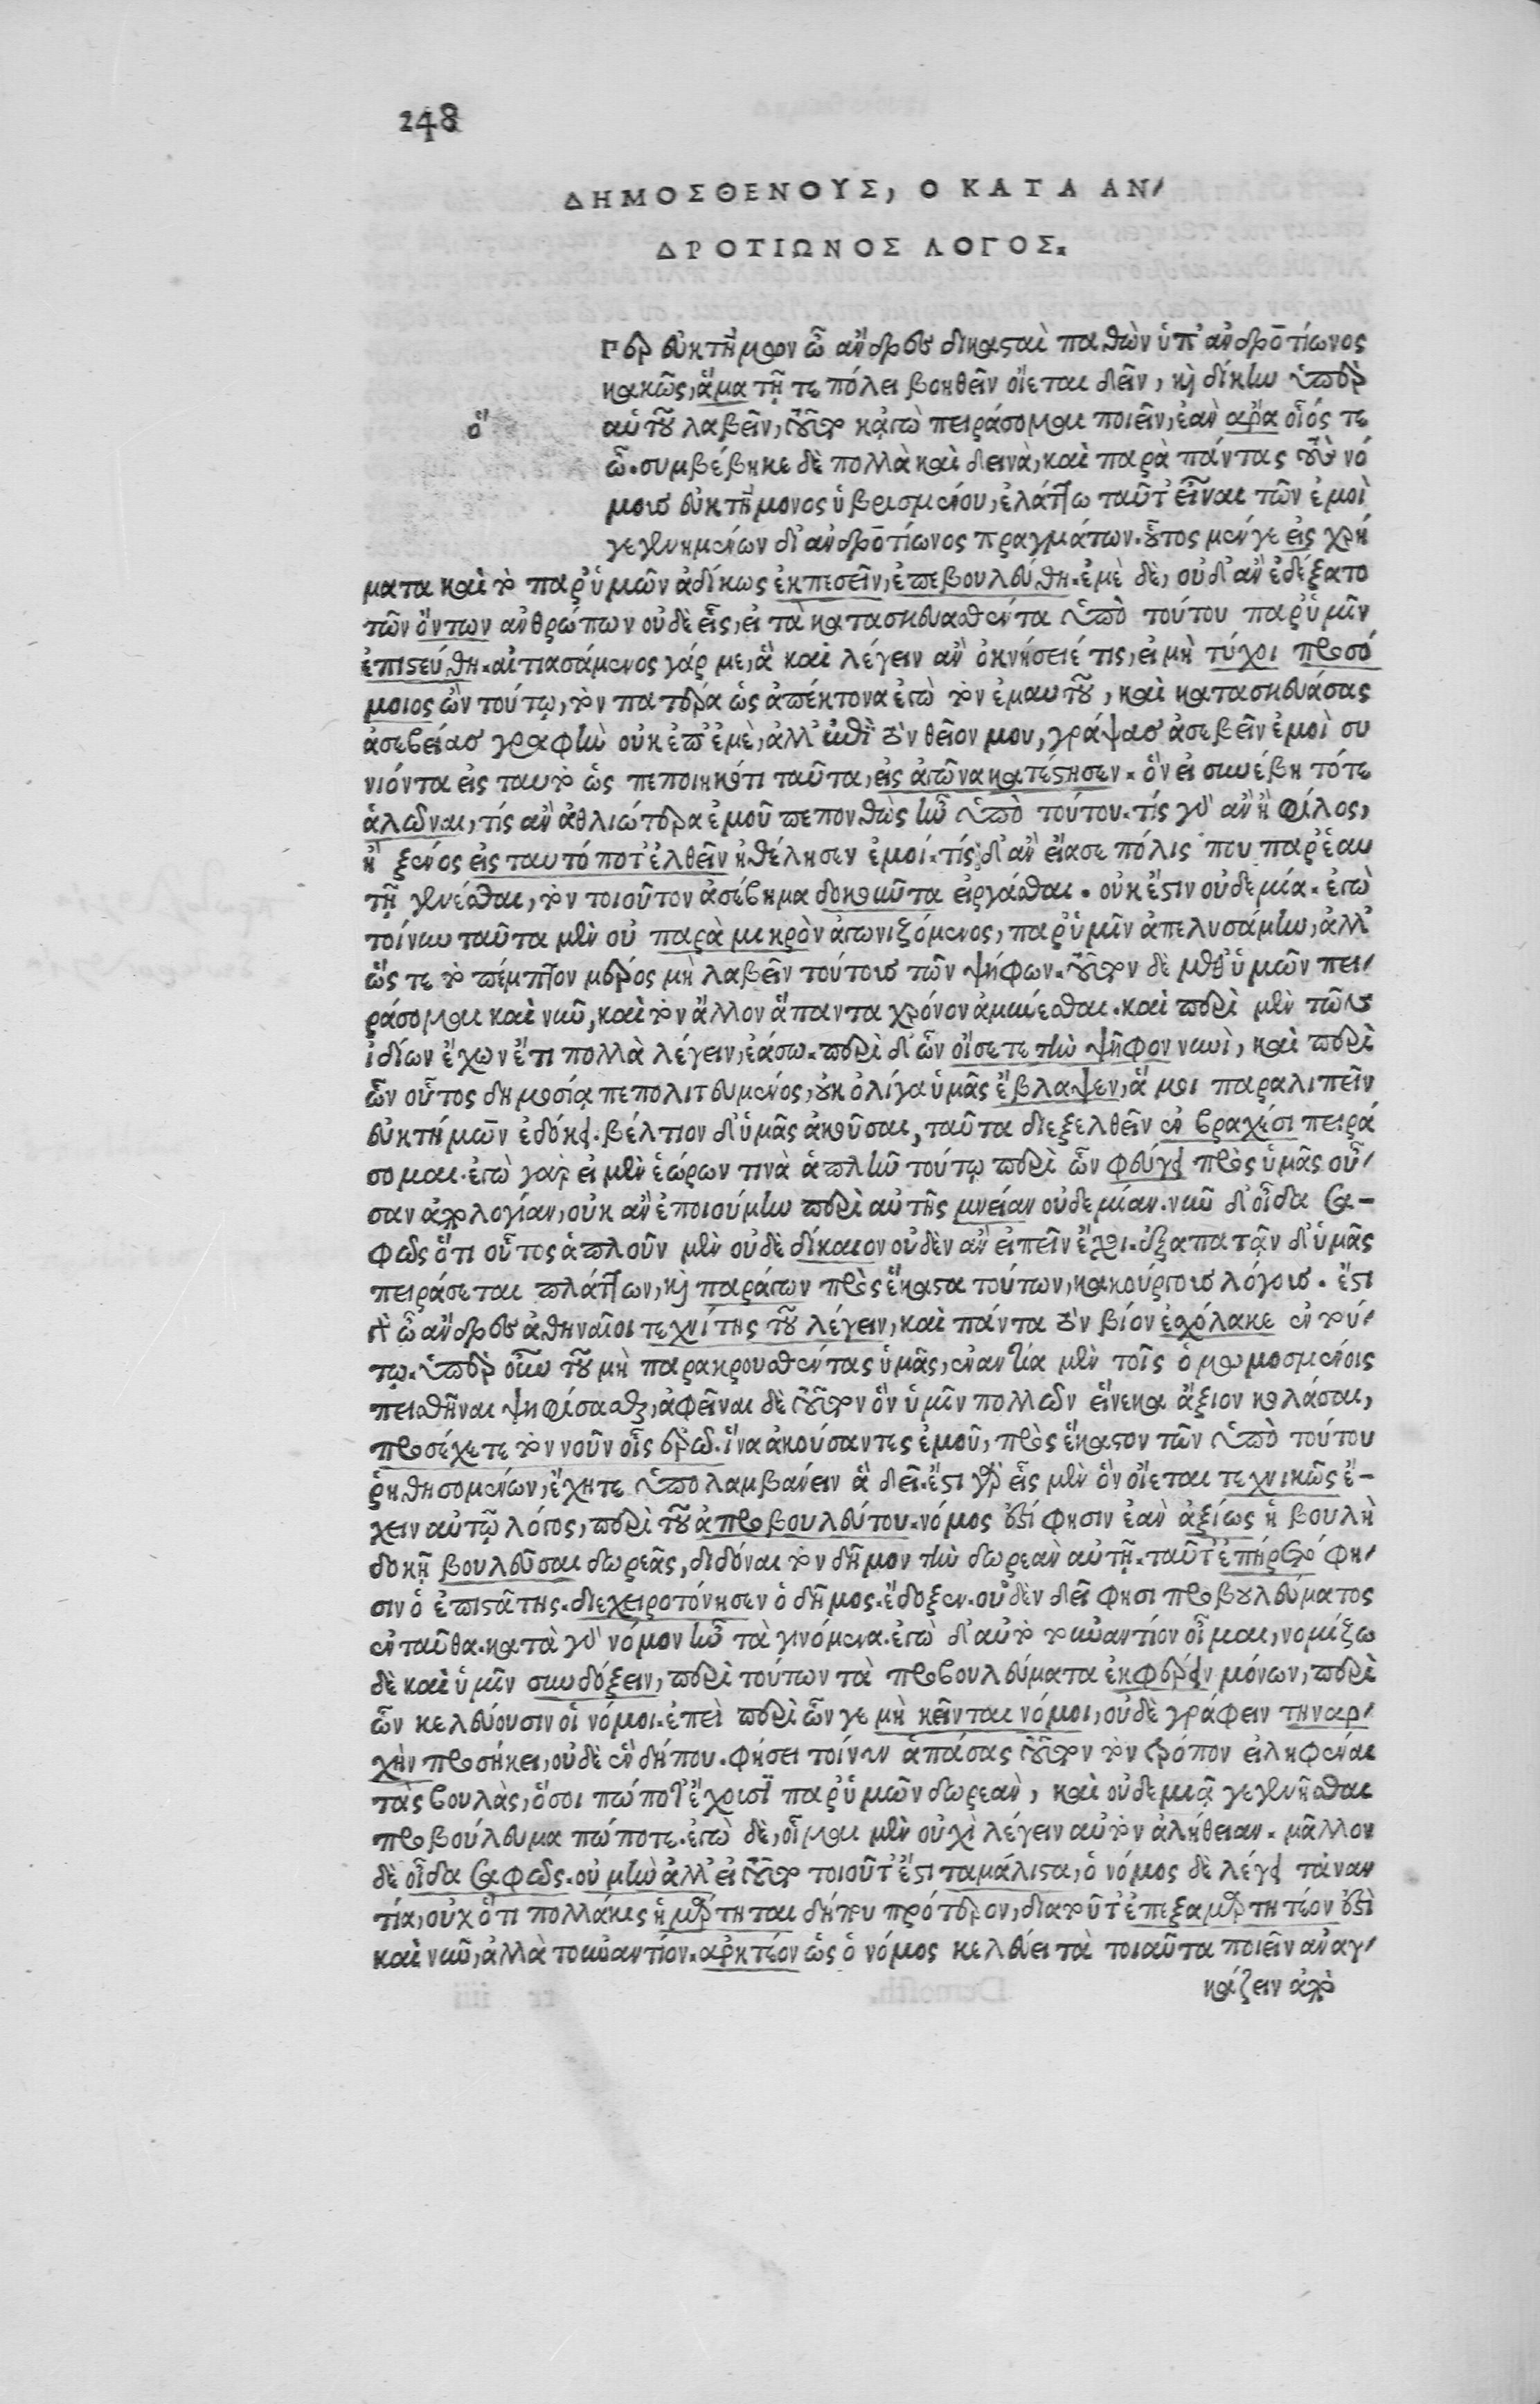 248
ΔΗΜΟΣΘΕΝΟΥΣ, Ο ΚΑΤΑ ΑΝ/
ΔΡΟΤΙΩΝΟΣ ΛΟΓΟΣ.
ὅ
περ εὐκτήμων ὦ ἄνδρες δικασταὶ παθὼν ὑπ' ἀνδροτίωνος
κακῶς, ἅμα τῇ τε πόλει βοηθεῖν οἴεται δεῖν, κὶ δίκην ὑπὲρ
αὑτοῦ λαβεῖν, τοῦτο κᾀγὼ πειράσομαι ποιεῖν, ἐὰν ἄρα οἷός τε
ὦ. συμβέβηκε δὲ πολλὰ καὶ δεινὰ, καὶ παρὰ πάντας τοὺς νό
μους εὐκτήμονος ὑβρισμένου, ἐλάττω ταῦτ' εἶναι τῶν ἐμοὶ
γεγενημένων δι' ἀνδροτίωνος πραγμάτων. οὗτος μέν γε εἰς χρή
ματα καὶ τὸ παρ' ὑμῶν ἀδίκως ἐκπεσεῖν, ἐπεβουλεύθη. ἐμὲ δὲ, οὐδ' ἂν ἐδέξατο
τῶν ὄντων ἀνθρώπων οὐδὲ εἷς, εἰ τὰ κατασκευασθέντα ὑπὸ τούτου παρ' ὑμῖν
ἐπιστεύθη. αἰτιασάμενος γάρ με, ἃ καὶ λέγειν ἂν ὀκνήσειέ τις, εἰ μὴ τύχοι προσό
μοιος ὢν τούτῳ, τὸν πατέρα ὡς ἀπέκτονα ἐγὼ τὸν ἐμαυτοῦ, καὶ κατασκευάσας
ἀσεβείας γραφὴν οὐκ ἐπ' ἐμὲ, ἀλλ' ἐπὶ τὸν θεῖόν μου, γράψας ἀσεβεῖν ἐμοὶ συ
νιόντα εἰς ταυτὸ ὡς πεποιηκότι ταῦτα, εἰς ἀγῶνα κατέστησεν. ὃν εἰ συνέβη τότε
ἁλῶναι, τίς ἂν ἀθλιώτερα ἐμοῦ πεπονθὼς ἦν ὑπὸ τούτου. τίς γὰρ ἂν ἢ φίλος,
ἢ ξένος εἰς ταυτό ποτ' ἐλθεῖν ἠθέλησεν ἐμοί. τίς δ' ἂν εἴασε πόλις που παρ' ἑαυ
τῇ γενέσθαι, τὸν τοιοῦτον ἀσέβημα δοκοῦντα εἰργάσθαι. οὐκ ἔστιν οὐδεμία. ἐγὼ
τοίνυν ταῦτα μὲν οὐ παρὰ μικρὸν ἀγωνιζόμενος, παρ' ὑμῖν ἀπελυσάμην, ἀλλ'
ὥς τε τὸ πέμπτον μέρος μὴ λαβεῖν τούτους τῶν ψήφων. τοῦτον δὲ μεθ' ὑμῶν πει/
ράσομαι καὶ νῦν, καὶ τὸν ἄλλον ἅπαντα χρόνον ἀμύνεσθαι. καὶ περὶ μὲν τῶν
ἰδίων ἔχων ἔτι πολλὰ λέγειν, ἐάσω. περὶ δ' ὧν οἴσετε τὴν ψῆφον νυνὶ, καὶ περὶ
ὧν οὗτος δημοσίᾳ πεπολιτευμένος, οὐκ ὀλίγα ὑμᾶς ἔβλαψεν, ἅ μοι παραλιπεῖν
εὐκτήμων ἐδόκει. βέλτιον δ' ὑμᾶς ἀκοῦσαι, ταῦτα διεξελθεῖν ἐν βραχέσι πειρά
σομαι. ἐγὼ γὰρ εἰ μὲν ἑώρων τινὰ ἁπλῆν τούτῳ περὶ ὧν φεύγει πρὸς ὑμᾶς οὖ/
σαν ἀπολογίαν, οὐκ ἂν ἐποιούμην περὶ αὐτῆς μνείαν οὐδεμίαν. νῦν δ' οἶδα σα-
φῶς ὅτι οὗτος ἁπλοῦν μὲν οὐδὲ δίκαιον οὐδὲν ἂν εἰπεῖν ἔχοι. ἐξαπατᾷν δ' ὑμᾶς
πειράσεται πλάττων, κὶ παράγων πρὸς ἕκαστα τούτων, κακούργους λόγους. ἔστι
γὰρ ὦ ἄνδρες ἀθηναῖοι τεχνίτης τοῦ λέγειν, καὶ πάντα τὸν βίον ἐσχόλακε ἐν τού/
τῳ. ὑπὲρ οὖν τοῦ μὴ παρακρουσθέντας ὑμᾶς, ἐναντία μὲν τοῖς ὀμωμοσμένοις
πεισθῆναι ψηφίσασθαι, ἀφεῖναι δὲ τοῦτον ὃν ὑμῖν πολλῶν εἵνεκα ἄξιον κολάσαι,
προσέχετε τὸν νοῦν οἷς ἐρῶ. ἵνα ἀκούσαντες ἐμοῦ, πρὸς ἕκαστον τῶν ὑπὸ τούτου
ῥηθησομένων, ἔχητε ὑπολαμβάνειν ἃ δεῖ. ἔστι γὰρ εἷς μὲν ὃν οἴεται τεχνικῶς ἔ-
χειν αὐτῷ λόγος, περὶ τοῦ ἀπροβουλεύτου. νόμος ἐστί φησιν ἐὰν ἀξίως ἡ βουλὴ
δοκῇ βουλεῦσαι δωρεᾶς, διδόναι τὸν δῆμον τὴν δωρεὰν αὐτῇ. ταῦτ' ἐπήρετο φη/
σιν ὁ ἐπιστάτης. διεχειροτόνησεν ὁ δῆμος. ἔδοξεν. οὐδὲν δεῖ φησι προβουλεύματος
ἐνταῦθα. κατὰ γὰρ νόμον ἦν τὰ γινόμενα. ἐγὼ δ' αὐτὸ τοὐναντίον οἶμαι, νομίζω
δὲ καὶ ὑμῖν συνδόξειν, περὶ τούτων τὰ προβουλεύματα ἐκφέρειν μόνων, περὶ
ὧν κελεύουσιν οἱ νόμοι. ἐπεὶ περὶ ὧν γε μὴ κεῖνται νόμοι, οὐδὲ γράφειν τηναρ/
χὴν προσήκει, οὐδὲ ἓν δήπου. φήσει τοίνυν ἁπάσας τοῦτον τὸν τρόπον εἰληφέναι
τὰς βουλὰς, ὅσοι πώποτ' ἔχουσι παρ' ὑμῶν δωρεὰν, καὶ οὐδεμιᾷ γεγενῆσθαι
προβούλευμα πώποτε. ἐγὼ δὲ, οἶμαι μὲν οὐχὶ λέγειν αὐτὸν ἀλήθειαν. μᾶλλον
δὲ οἶδα σαφῶς. οὐ μὴν ἀλλ' εἰ τοῦτο τοιοῦτ' ἔστι ταμάλιστα, ὁ νόμος δὲ λέγει τἀναν
τία, οὐχ ὅτι πολλάκις ἡμάρτηται δήπου πρότερον, διατοῦτ' ἐπεξαμαρτητέον ἐστὶ
καὶ νῦν, ἀλλὰ τοὐναντίον. ἀρκτέον ὡς ὁ νόμος κελεύει τὰ τοιαῦτα ποιεῖν ἀναγ/
κάζειν ἀπὸ